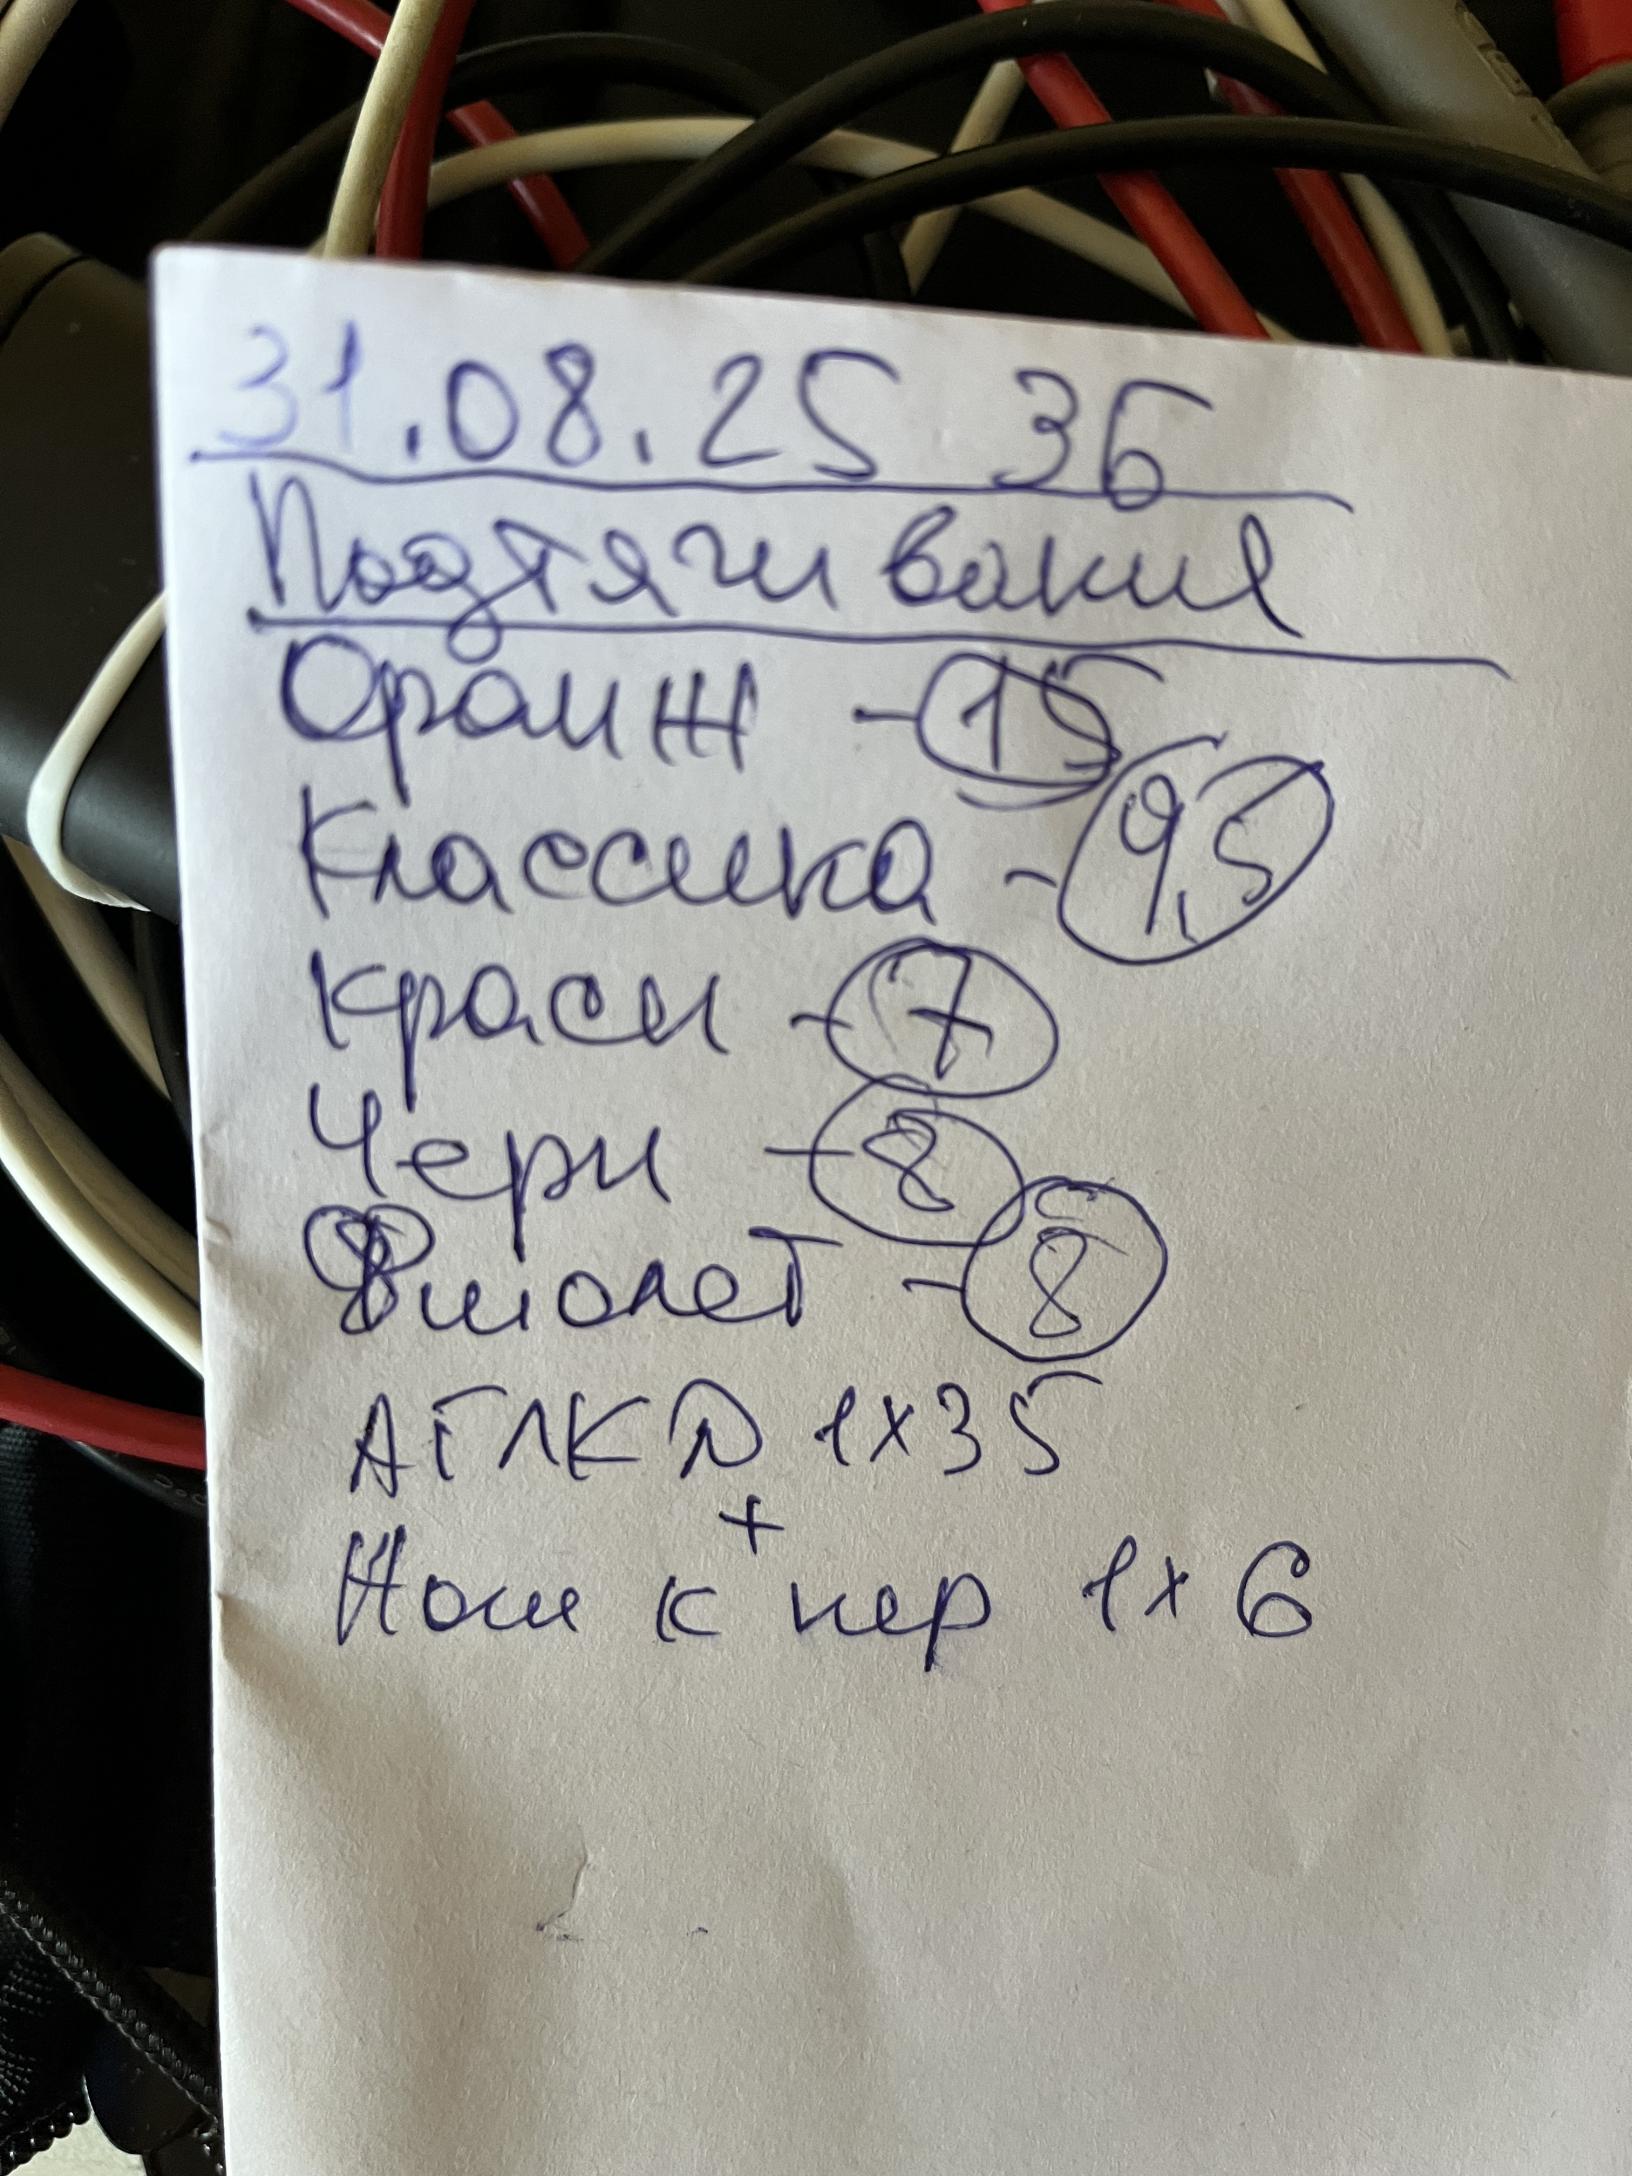 31.08.25 36
Подтягивания
Оранж - 15
Классика - 9,5
Красн - 7
Черн - 8
Фиолет - 8
АГЛКД 1х35
+
Ноги к пер 1х6